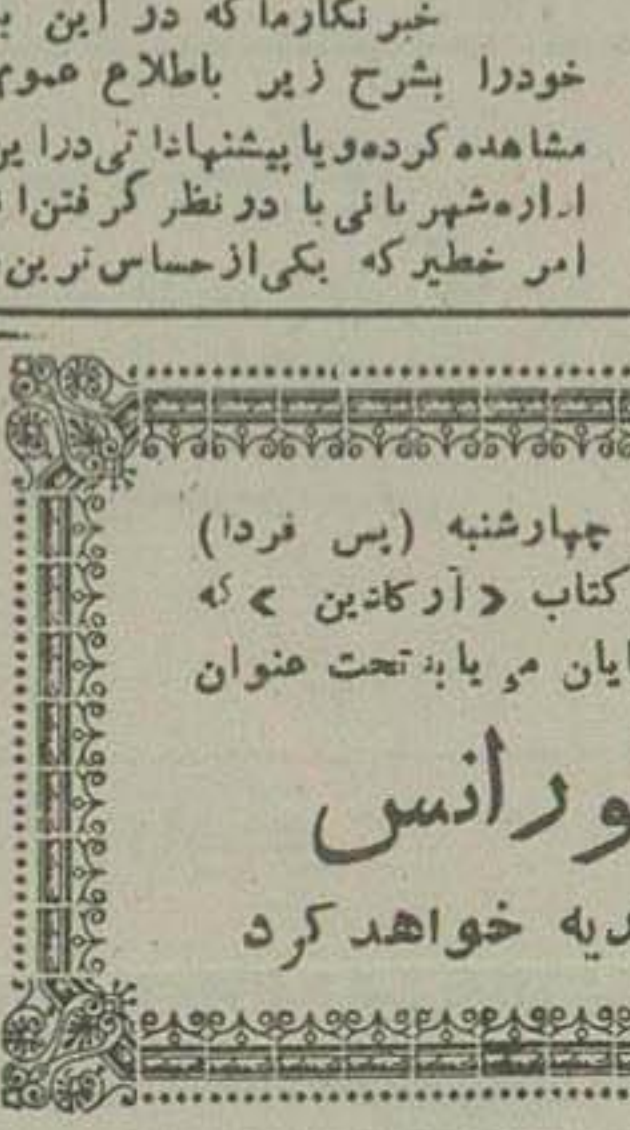 خبرنگارما که در این
خودرا بشرح زیر باطلاع عموم
مشاهده کرده‌و یا پیشنهاداتی‌دراین
اداره‌شهربانی با در نظر گرفتن
امر خطیر که یکی از حساس‌ترین
چهارشنبه (پس فردا)
کتاب «آرکادین» که
می یابد تحت عنوان
ورانس
خواهد کرد